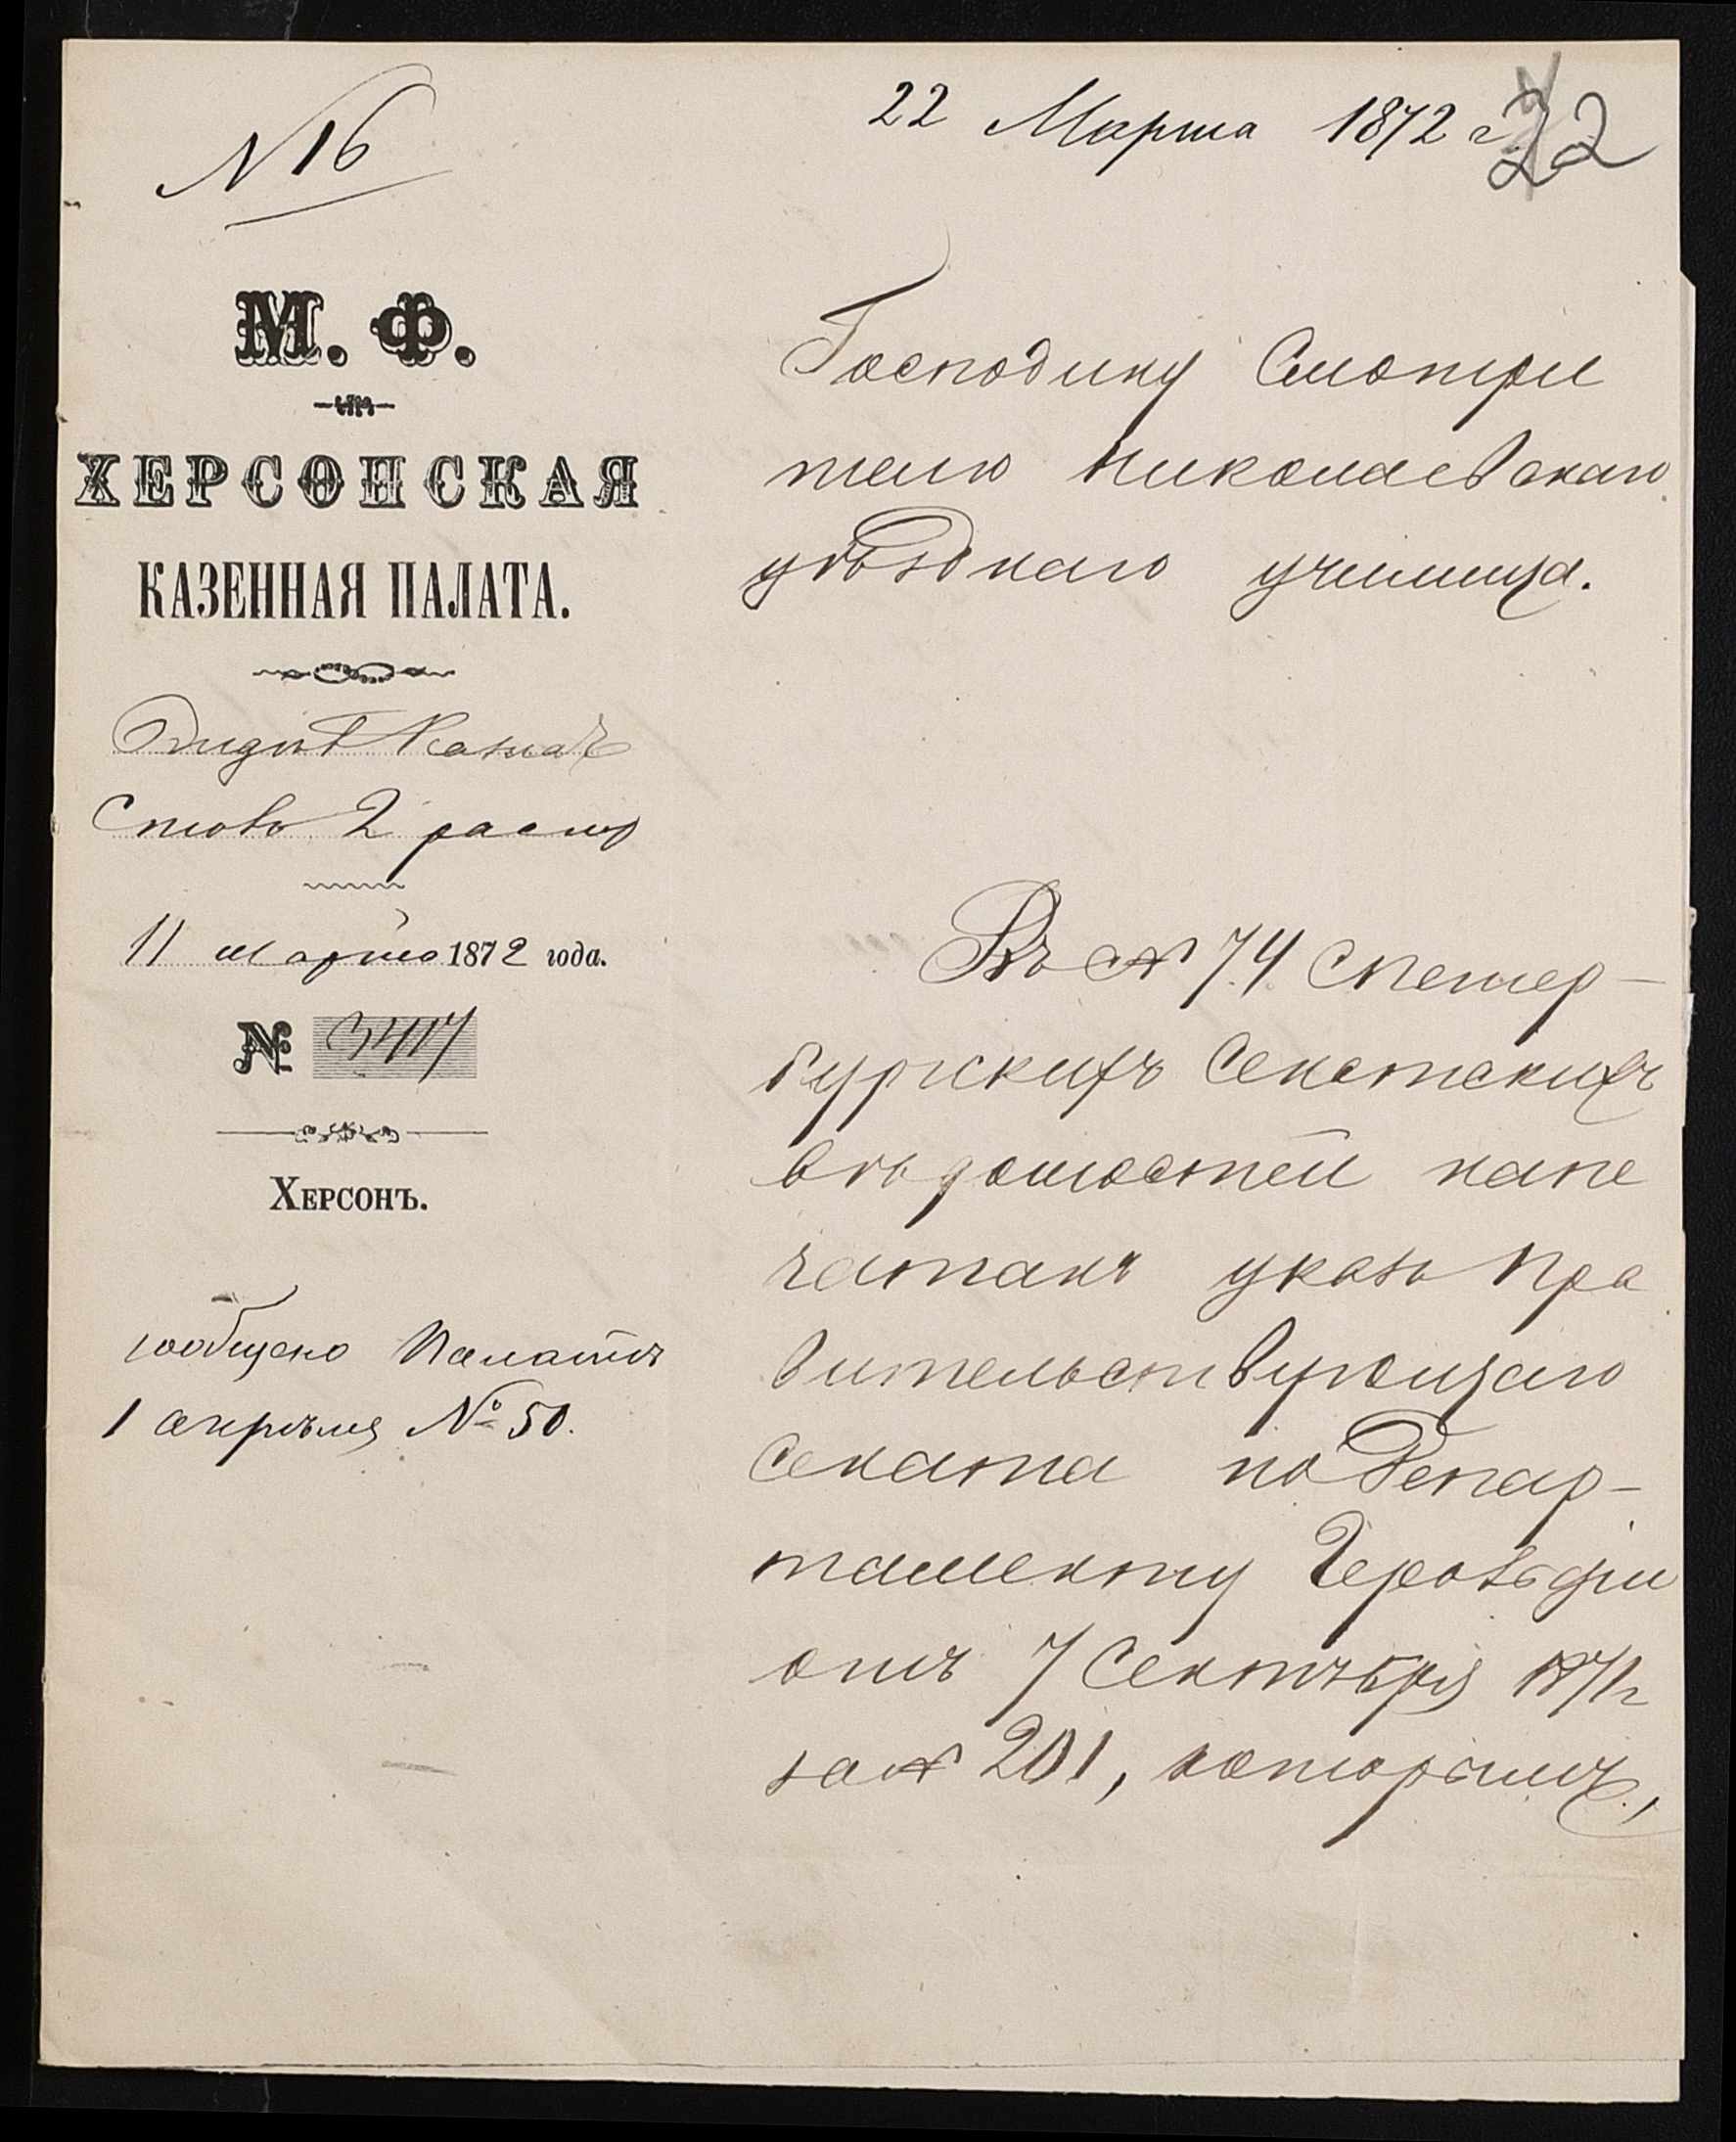 № 16
22 Марта 1872 г.
22
М. Ф.
ХЕРСОНСКАЯ
КАЗЕННАЯ ПАЛАТА.
Отдѣл Казнач
Столъ 2 распор
11 Марта 1872 года.
№ 3417
Херсонъ.
сообщено Палатѣ
1 апрѣля № 50.
Господину Смотри
телю Николаевскаго
уѣзднаго училища.
Въ № 74 СПетер-
бургскихъ Сенатскихъ
вѣдомостей напе
чатанъ указъ Пра
вительствующаго
Сената по Депар-
таменту Герольдіи
отъ 7 Сентября 1871 г
за № 201, которымъ,